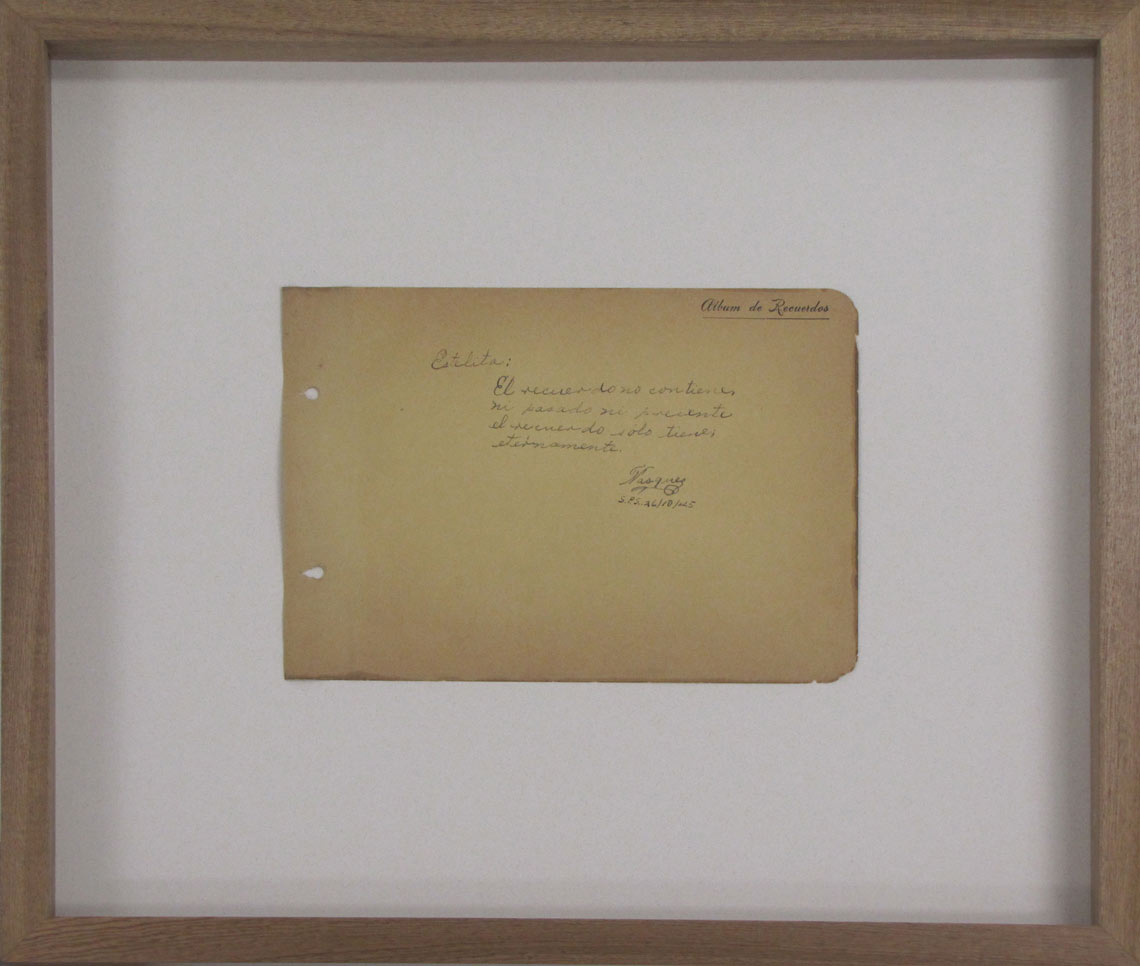 Album de Recuerdos
Estilita:
El recuerdo no contienes
ni pasado ni presente
el recuerdo solo tienes
eternamente.
Vasquez
S.P.S. 26/10/45